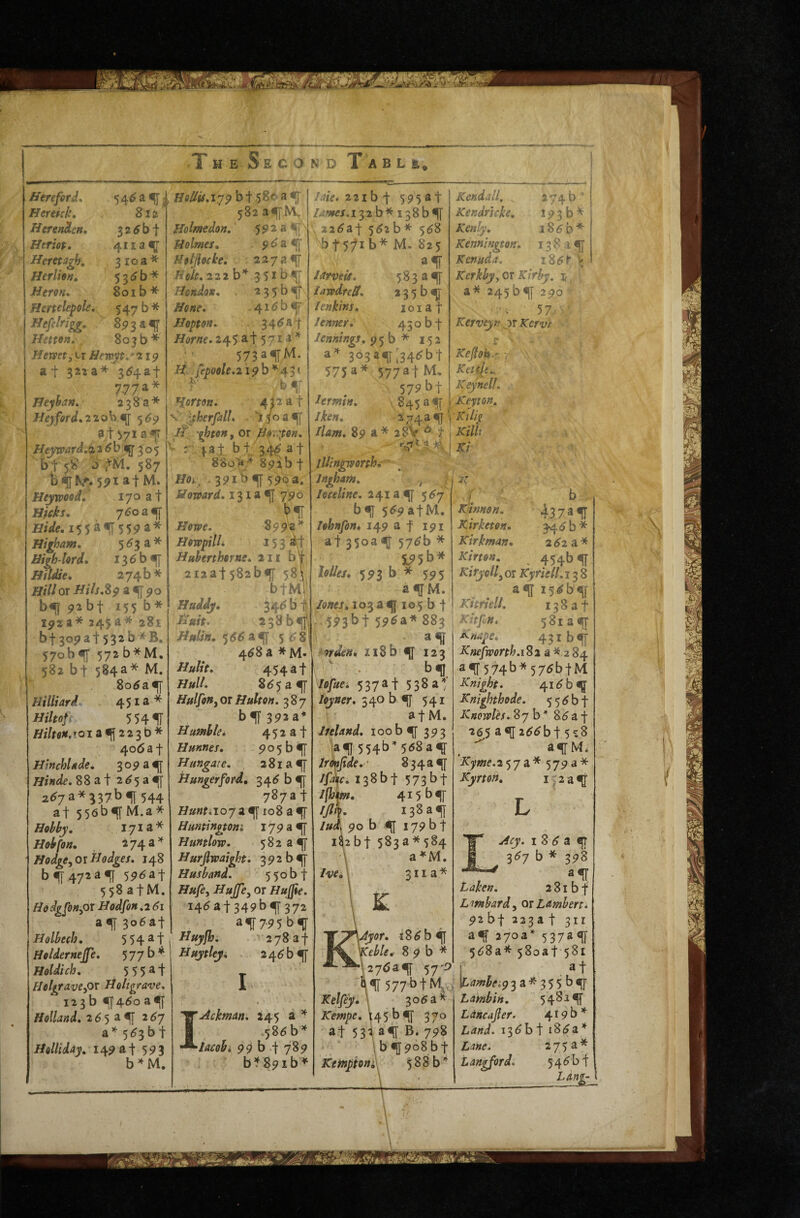 THE SECOND TABLE.
Hereford. 546 a ¶
Hereick. 812
Herenden. 326 b †
Heriot. 411 a ¶
Heretagh. 310 a *
Herlion. 536 b *
Heron. 801 b *
Hertelepole. 547 b *
Heselrigg. 893 a ¶
Hetton. 803 b *
Hewet, or Hewyt. 219
a † 322 a * 364 a †
777 a *
Heyban. 238 a *
Heyford. 220 b ¶ 569
a † 571 a ¶
Heyward. 226 b ¶ 305
587
591 a † M.
Heywood. 170 a †
Hicks. 760 a ¶
Hide. 155 a ¶ 559 a *
Higham. 563 a *
High-lord. 136 b ¶
Hildie. 274 b *
Hill or Hils. 89 a ¶ 90
b ¶ 92 b † 155 b *
192 a * 245 a * 281
b † 309 a † 532 b * B.
570 b ¶ 572 b * M.
582 b † 584 a * M.
806 a ¶
Hilliard 451 a *
Hiltoft 554 ¶
Hilton. 101 a ¶ 223 b *
406 a †
Hinchlade. 309 a ¶
Hinde. 88 a † 265 a ¶
267 a * 337 b ¶ 544
a † 556 b ¶ M. a *
Hobby. 171 a *
Hobson. 274 a *
Hodge, or Hodges. 148
b ¶ 472 a ¶ 596 a †
558 a † M.
Hodgson, or Hodson. 261
a ¶ 306 a †
Holbech. 554 a †
Holdernesse. 577 b *
Holdich. 555 a †
Holgrave, or Holtgrave.
123 b ¶ 460 a ¶
Holland. 265 a ¶ 267
a * 563 b †
Holliday. 149 a † 593
b * M.
Hollis. 179 b † 580 a ¶
582 a ¶ M.
Holmedon. 592 a ¶
Holmes. 96 a ¶
Holstocke. 227 a ¶
Holt. 222 b * 351 b ¶
Hondon. 235 b ¶
Hone. 416 b ¶
Hopton. 346 a †
Horne. 245 a † 571 a *
573 a ¶ M.
219 b * 431
b ¶
Horton. 432 a †
150 a ¶
a † b † 346 a †
880 a * 892 b †
391 b ¶ 590 a.
Howard. 131 a ¶ 790
b ¶
Howe. 899 a *
Howpill. 153 a †
Huberthorne. 211 b †
212 a † 582 b ¶ 583
b † M.
Huddy. 346 b †
Huit. 238 b ¶
Hulin. 566 a ¶ 568
468 a * M.
Hulit. 454 a †
Hull. 865 a ¶
Hulson, or Hulton. 387
b ¶ 392 a *
Humble. 452 a †
Hunnes. 905 b ¶
Hungate. 281 a ¶
Hungerford. 346 b ¶
787 a †
Hunt. 107 a ¶ 108 a ¶
Huntington. 179 a ¶
Huntlow. 582 a ¶
Hurstwaight. 392 b ¶
Husband. 550 b †
Huse, Husse, or Hussie.
146 a † 349 b ¶ 372
a ¶ 795 b ¶
Huysh. 278 a †
Huytley. 246 b ¶
I
IAckman. 245 a *
586 b *
Iacob. 99 b † 789
b * 891 b *
Iaie. 221 b † 595 a †
Iames. 132 b * 138 b ¶
226 a † 562 b * 568
b † 571 b * M. 825
a ¶
Iarveis. 583 a ¶
Iawdrell. 235 b ¶
Ienkins. 101 a †
Ienner. 430 b †
Iennings. 95 b * 152
a * 363 a ¶ 346 b †
575 a * 577 a † M.
579 b †
Iermin. 845 a ¶
Iken. 274 a ¶
Ilam. 89 a *
Illingworth.
Ingham.
Ioceline. 241 a ¶ 567
b ¶ 569 a † M.
Iohnson. 149 a † 191
a † 350 a ¶ 576 b *
595 b *
Iolles. 593 b * 595
a ¶ M.
Iones. 103 a ¶ 105 b †
593 b † 596 a * 883
a ¶
118 b ¶ 123
b ¶
Iosue. 537 a † 538 a †
Ioyner. 340 b ¶ 541
a † M.
Ireland. 100 b ¶ 393
a ¶ 554 b * 568 a ¶
Ironside. 834 a ¶
Isaac. 138 b † 573 b †
Isham. 415 b ¶
Islip. 138 a ¶
Iud 90 b ¶ 179 b †
182 b † 583 a * 584
a * M.
Ive. 311 a *
K
KAyor. 186 b ¶
Keble. 89 b *
276 a ¶ 57
¶ 577 b † M.
Kelsey. 306 a *
Kempe. 145 b ¶ 370
a † 532 a ¶ B. 798
b ¶ 908 b †
Kempton. 588 b *
Kendall. 274 b
Kendricke. 193 b *
Kenly. 186 b *
Kennington. 138 a ¶
Kenuda. 186
Kerkby, or Kirby.
a * 245 b ¶ 290
57
Kerveyr or Kerv
Keynell.
Keyton.
b
Kinnon. 437 a ¶
Kirketon. 346 b *
Kirkman. 262 a *
Kirton. 454 b ¶
Kiryell, or Kyriell. 138
a ¶ 156 b ¶
Kitriell. 138 a †
Kitson. 581 a ¶
Knape. 431 b ¶
Kneſworth. 182 a * 284
a ¶ 574 b * 576 b † M
Knight. 416 b ¶
Knighthode. 556 b †
Knowles. 87 b * 86 a †
265 a ¶ 266 b † 558
a ¶ M.
Kyme. 257 a * 579 a *
Kyrton. 152 a ¶
L
LAcy. 186 a ¶
367 b * 398
a ¶
Laken. 281 b †
Lambard, or Lambert.
92 b † 223 a † 311
a ¶ 270 a * 537 a ¶
568 a * 580 a † 581
a †
Lambe. 93 a * 355 b ¶
Lambin. 548 a ¶
Lancaster. 419 b *
Land. 136 b † 186 a *
Lane. 275 a *
Langford. 546 b †
Lang-